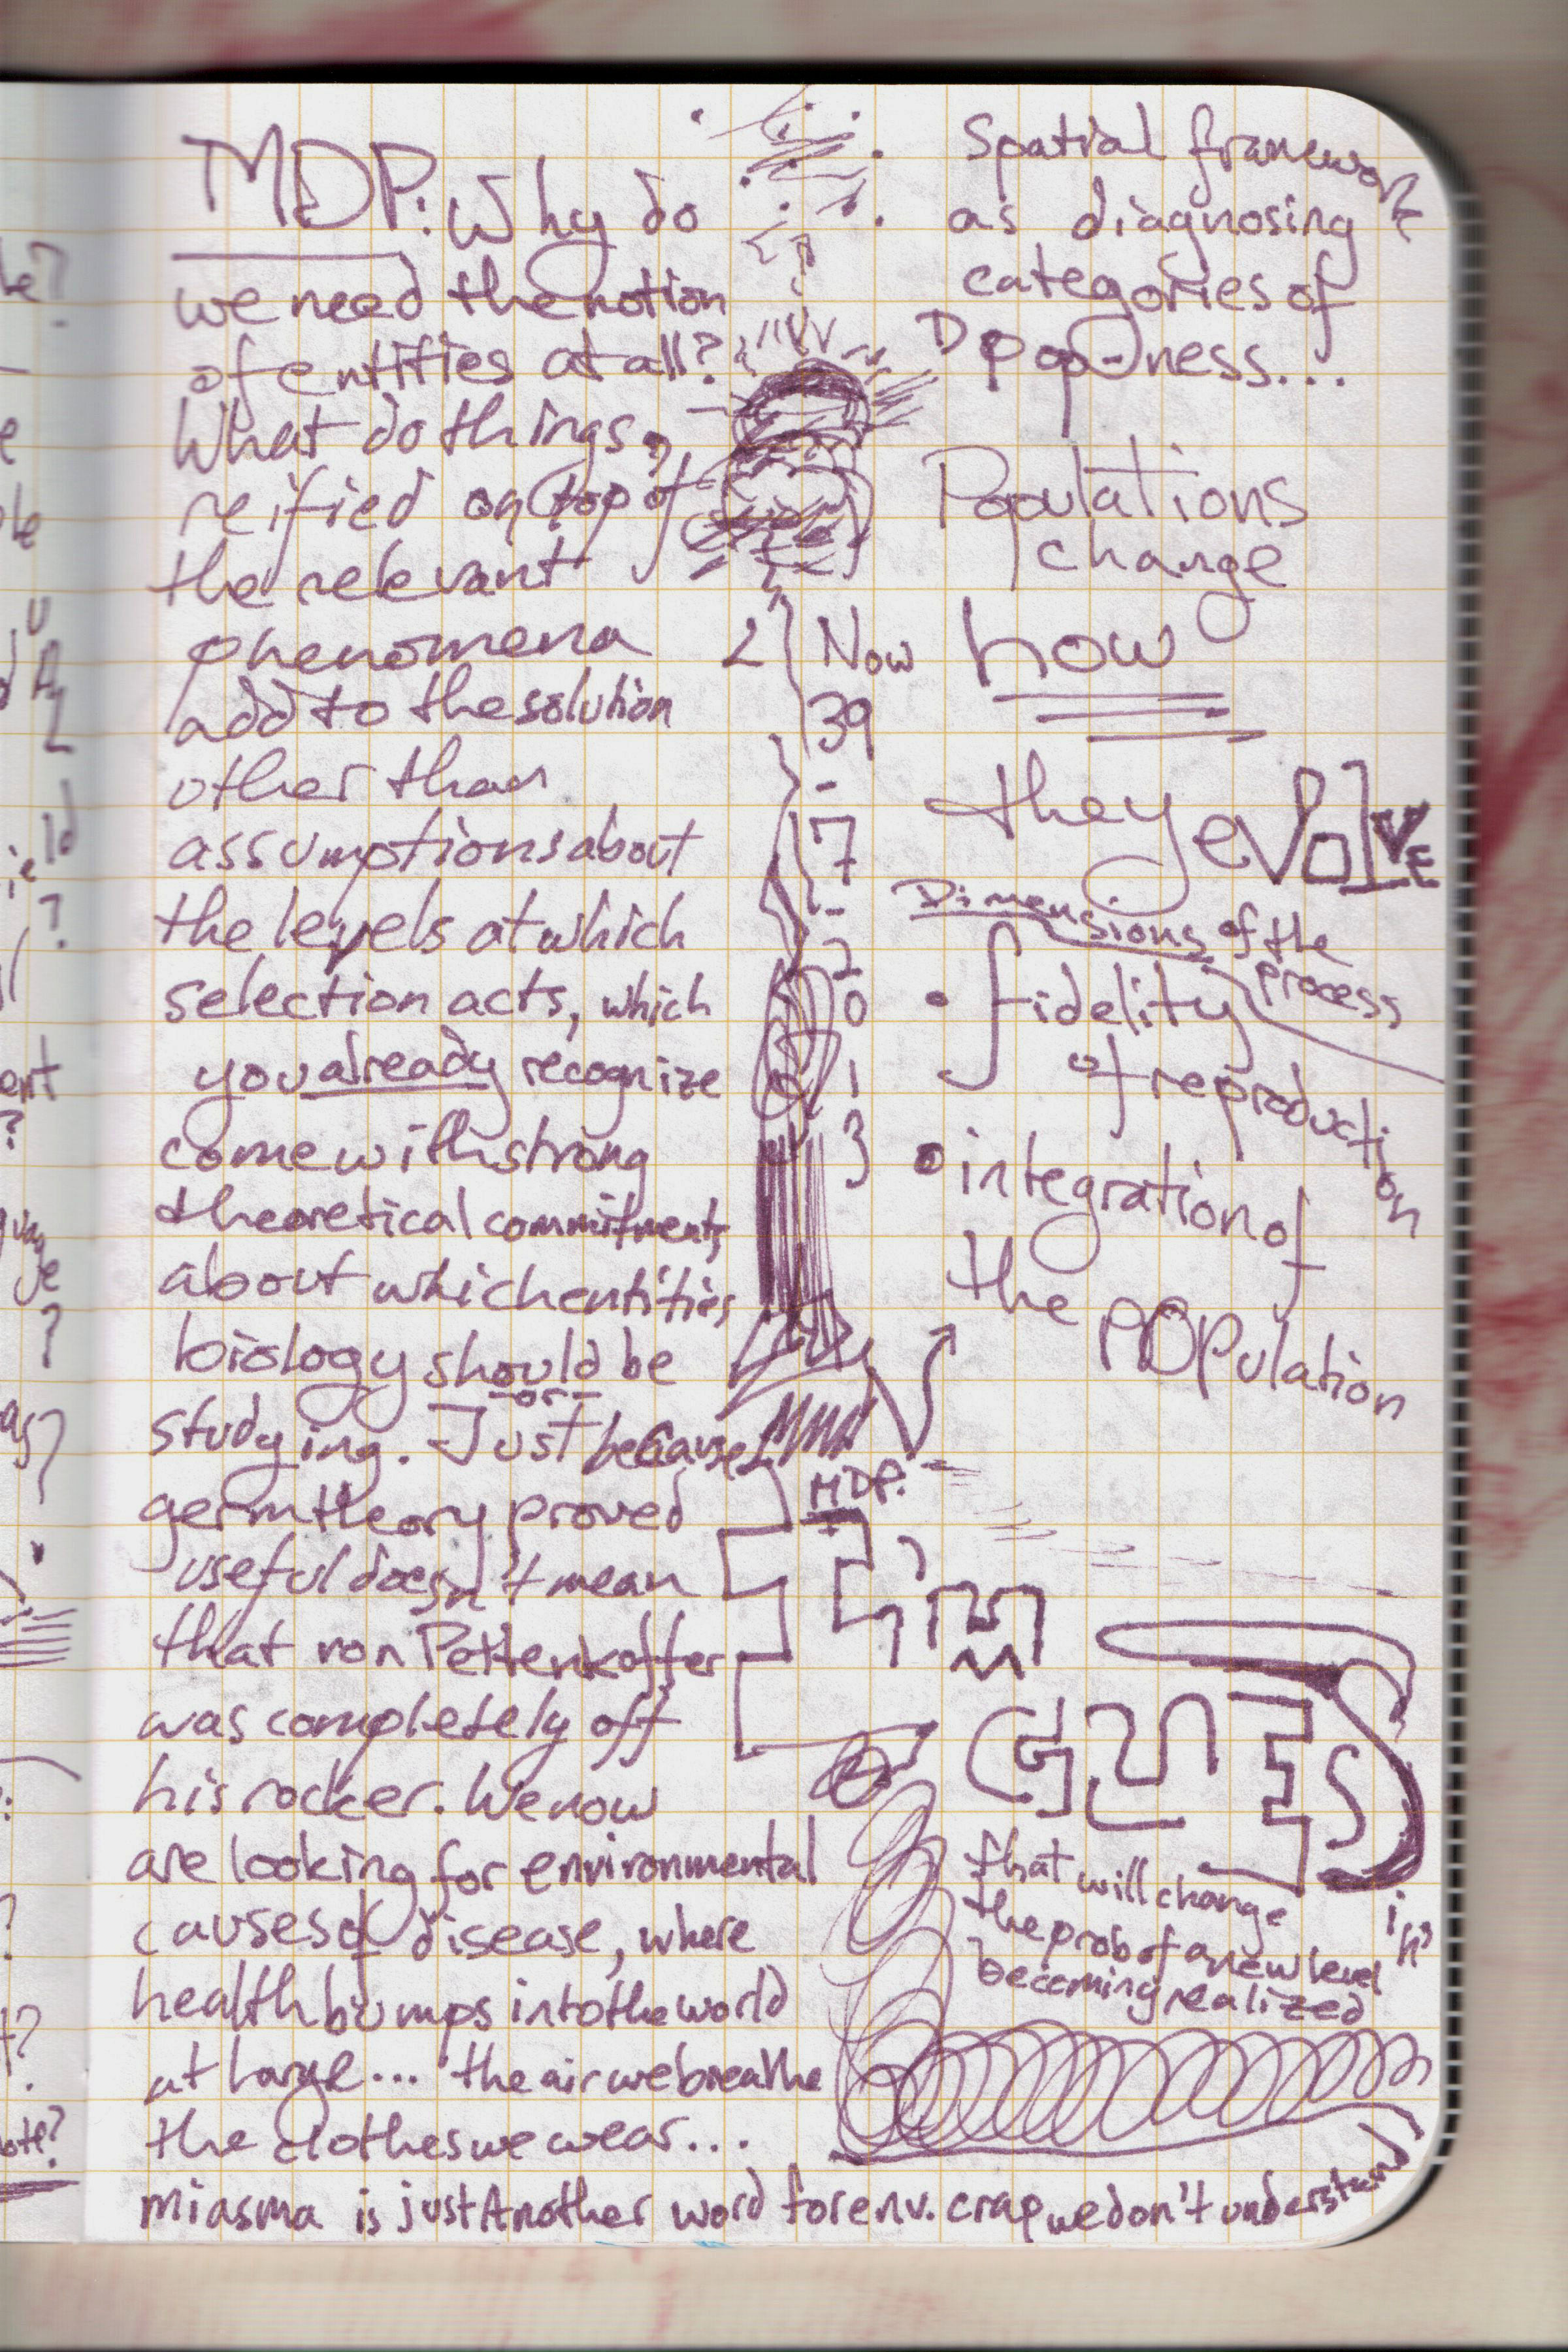 MDP: Why do
we need the notion
of entities at all?
What do things,
reified on top of
the relevant
phenomena
add to the solution
other than
assumptions about
the levels at which
selection acts, which
you already recognize
come with strong
theoretical commitments
about which entities
biology should be
studying. -or- Just because
germ theory proved
useful doesn't mean
that von Pettenkoffer
was completely off
his rocker. We now
are looking for environmental
causes of disease, where
health bumps into the world
at large... the air we breathe
the clothes we wear...
miasma is just Another word for env. crap we don't understand
Now
39
-
17
-
20
1
3
Spatial framework
as diagnosing
categories of
D pop-ness...
Populations
change
how
they evolVE
Dimensions of the
process
• fidelity
of reproduction
• integration of
the POPulation
MDP:
I'm
GUES
in'
that will change
the prob of a new level
becoming realized